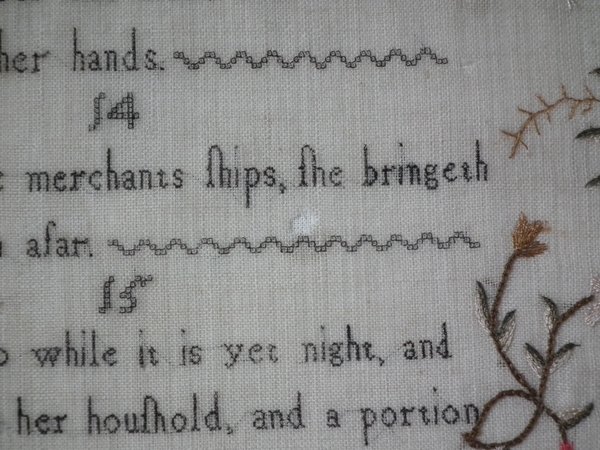 her hands.
14
merchants ſhips, ſhe bringeth
afar.
15
while it is yet night, and
her houſhold, and a portion